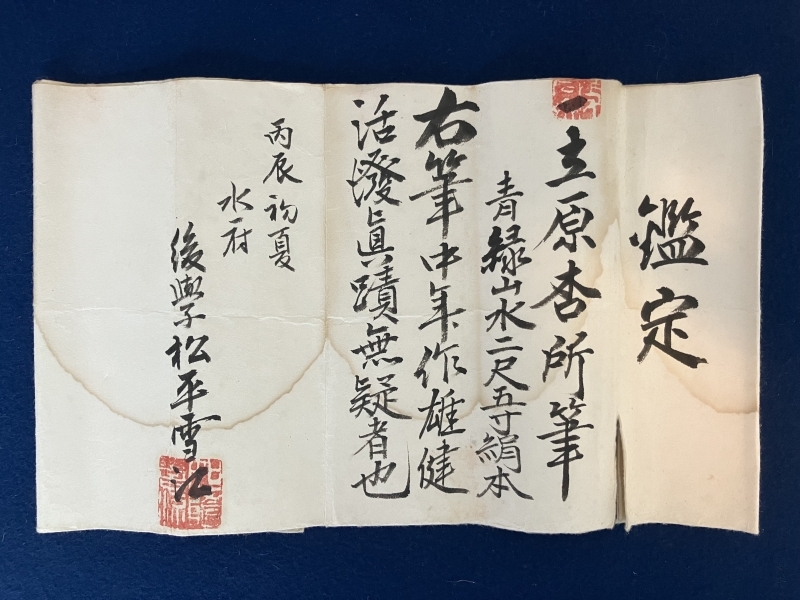 鑑定
一立原杏所筆
青緑山水二尺五寸絹本
右筆中年作雄健
活潑眞蹟無疑者也
丙辰初夏
水府
後學松平雪江